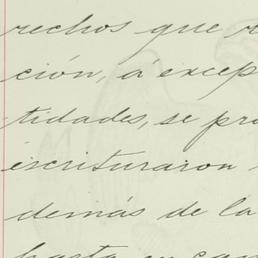 rechos que
ción, á excep
tidades, se pro
escrituraron
demás de la
hasta en can